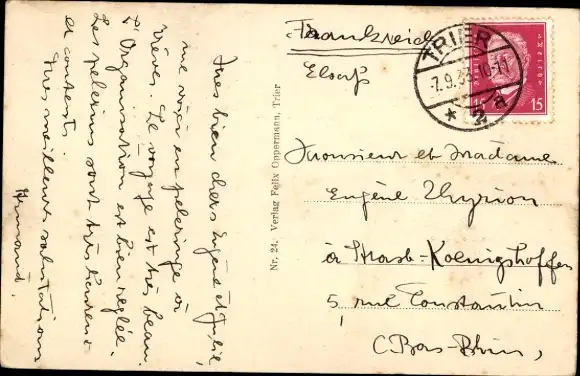 Mes bien chers Eugène et Julie,
me voici en pèlerinage à
Trèves. Le voyage est très beau.
L'Organisation est bien réglée.
Les pèlerins sont très
et contents.
Mes meilleures salutations
Armand.
Nr. 24. Verlag Felix Oppermann, Trier
Frankreich
Elsaß
TRIER
-7.9.33.10-11
* 2a
15
15
Monsieur et Madame
Eugène Thyrion
à Strasb-Koenigshoffen
5, rue Constantin
(Bas-Rhin)